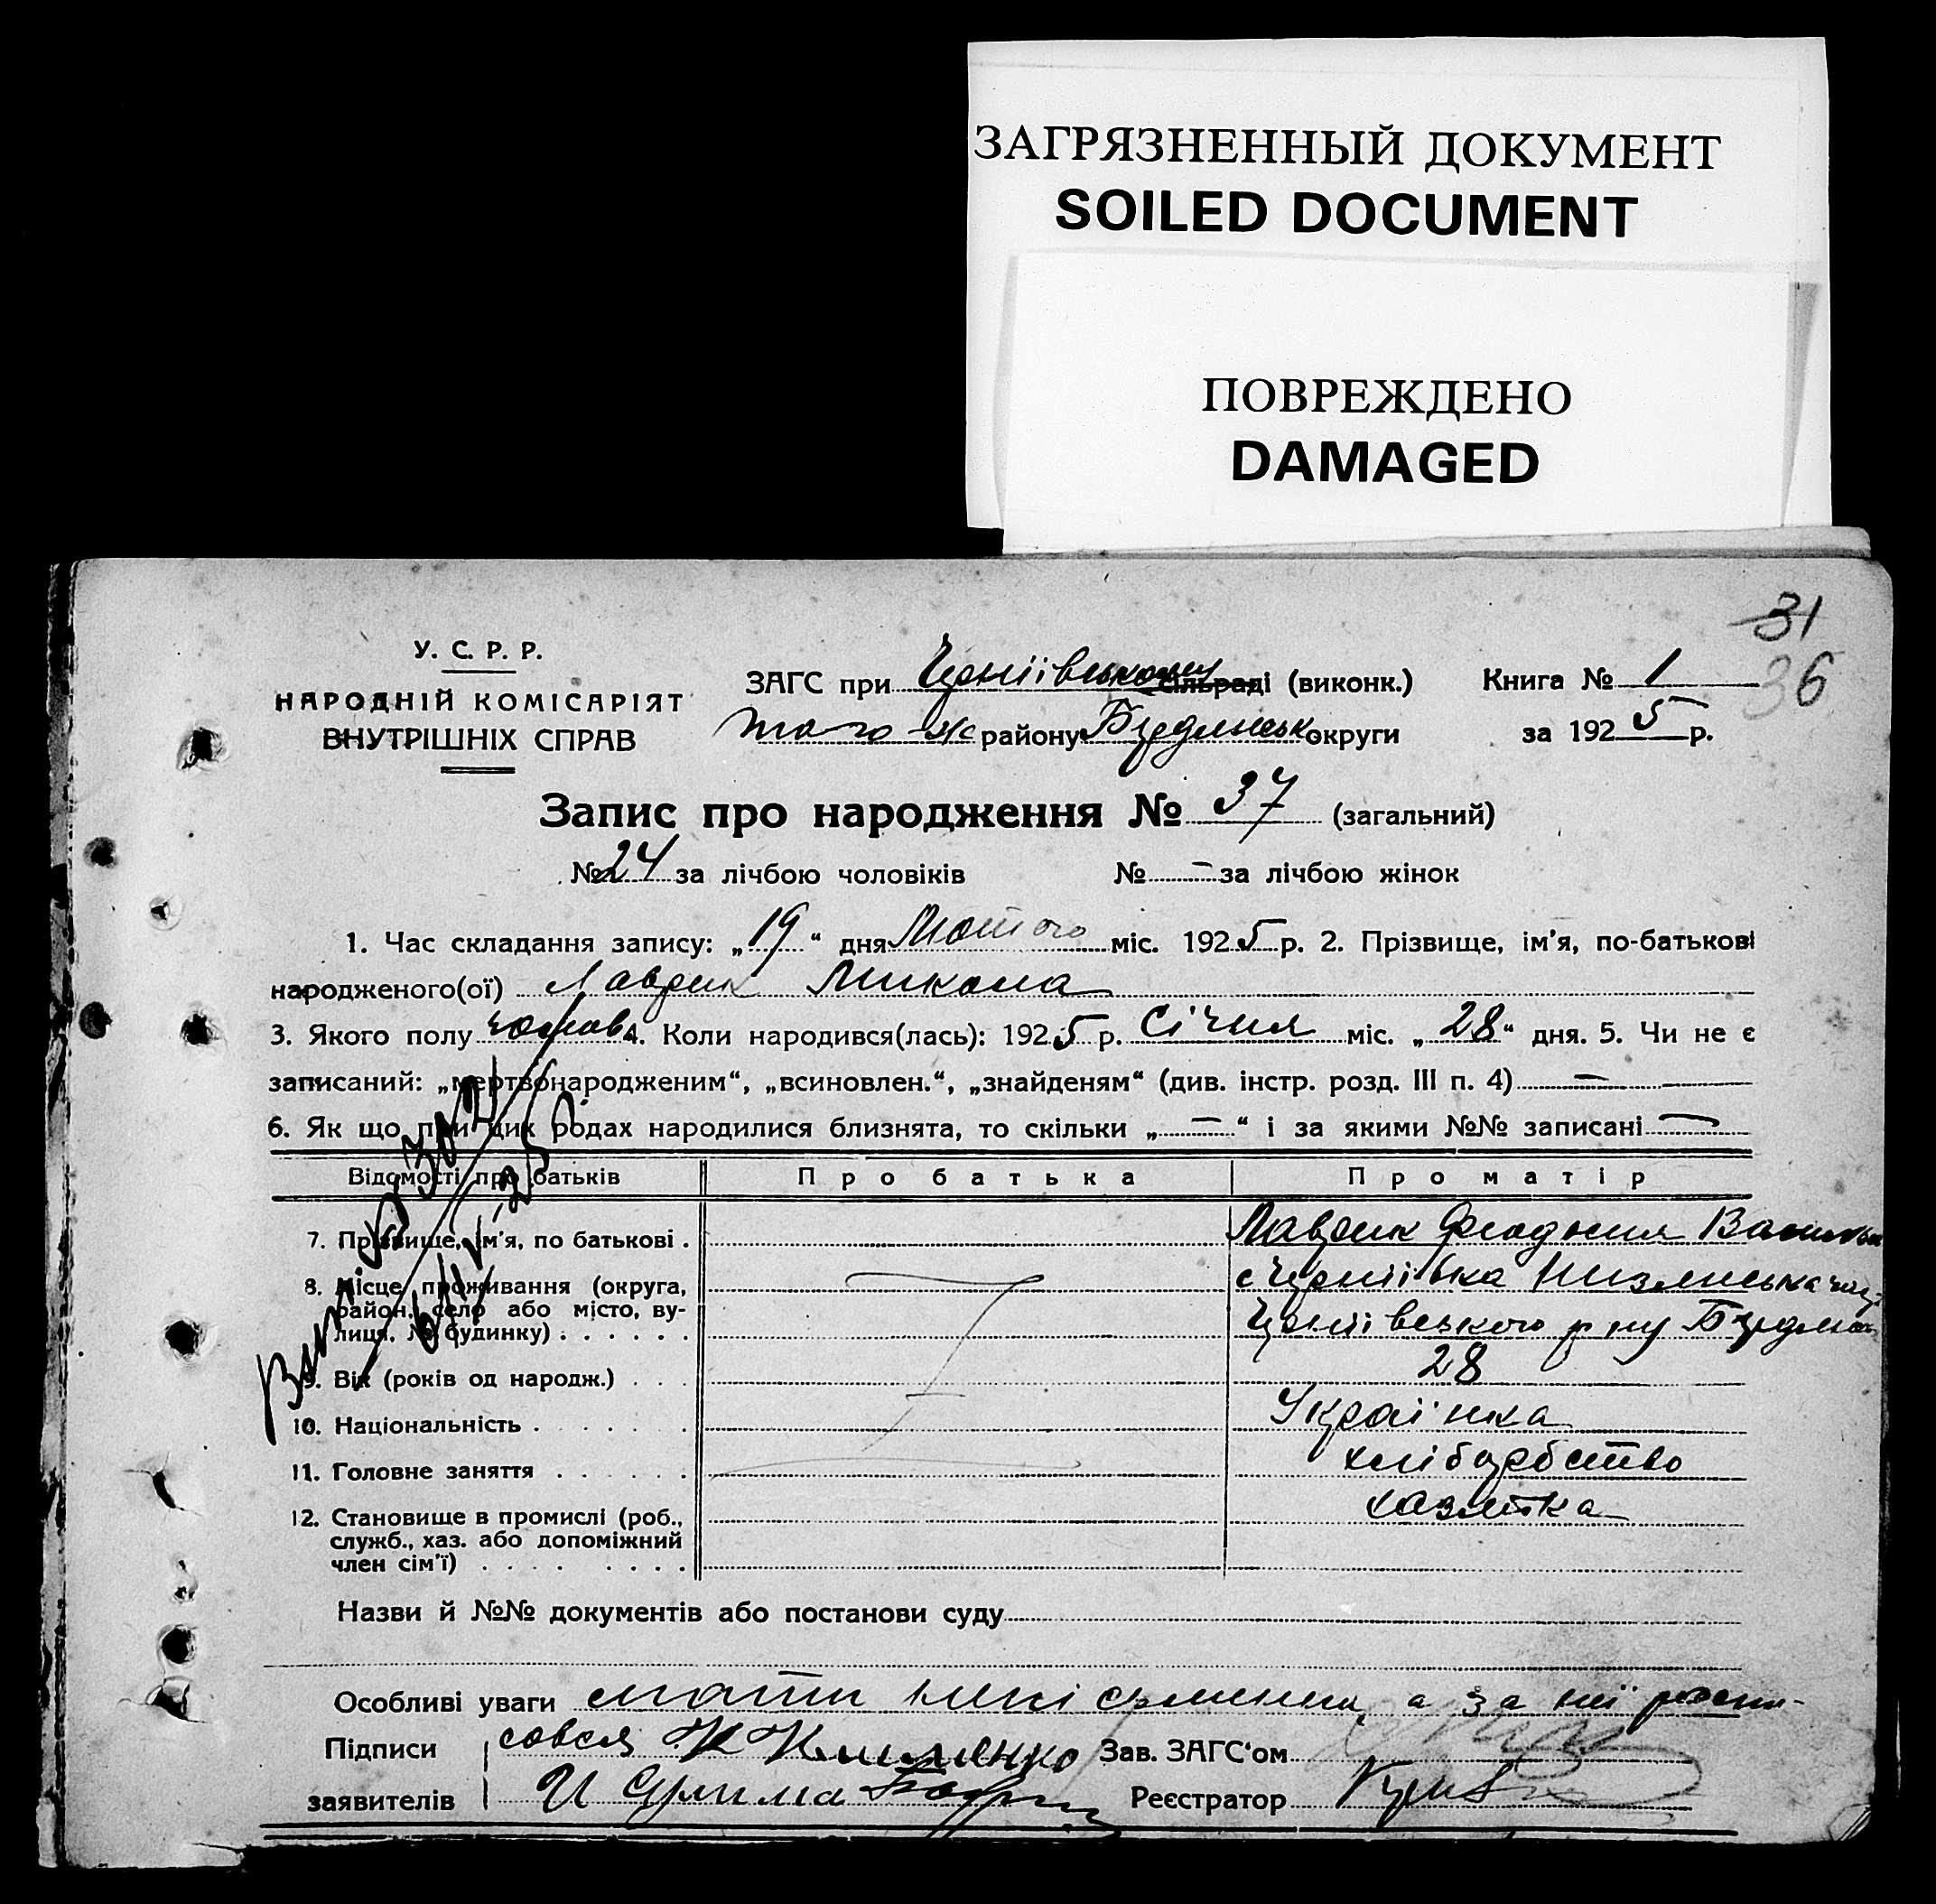 ЗАГРЯЗНЕННЫЙ ДОКУМЕНТ
SOILED DOCUMENT
ПОВРЕЖДЕНО
DAMAGED
31
36
У. С. Р. Р.
НАРОДНІЙ КОМІСАРІЯТ
ВНУТРІШНІХ СПРАВ
ЗАГС при сільраді (виконк.) Книга № 1
того ж району округи за 1925 р.
Запис про народження № 37 (загальний)
№ 24 за лічбою чоловіків № – за лічбою жінок
1. Час складання запису: „19“ дня Лютого міс. 1925 р. 2. Прізвище, ім’я, по-батькові
народженого(ої) Лаврик Микола
3. Якого полу чолов. 4. Коли народився(лась): 1925 р. Січня міс. „28“ дня. 5. Чи не є
записаний: „мертвонародженим“, „всиновлен.“, „знайденям“ (див. інстр. розд. III п. 4) —
6. Як що при цих родах народилися близнята, то скільки „—“ і за якими №№ записані —
Відомості про батьків Про батька Про матір
7. Прізвище, ім’я, по батькові . Лаврик
8. Місце проживання (округа,
район, село або місто, ву-
лиця, № будинку) . . . . . .
9. Вік (років од народж.) . . . 28
10. Національність . . . . . . Українка
11. Головне заняття . . . . . . хліборобство
12. Становище в промислі (роб., хазяйка
служб., хаз. або допоміжний
член сім’ї) . . . . . . . .
Назви й №№ документів або постанови суду
Особливі уваги мати а за неї розпи-
Підписи сався К Клименко Зав. ЗАГС’ом
заявителів Реєстратор